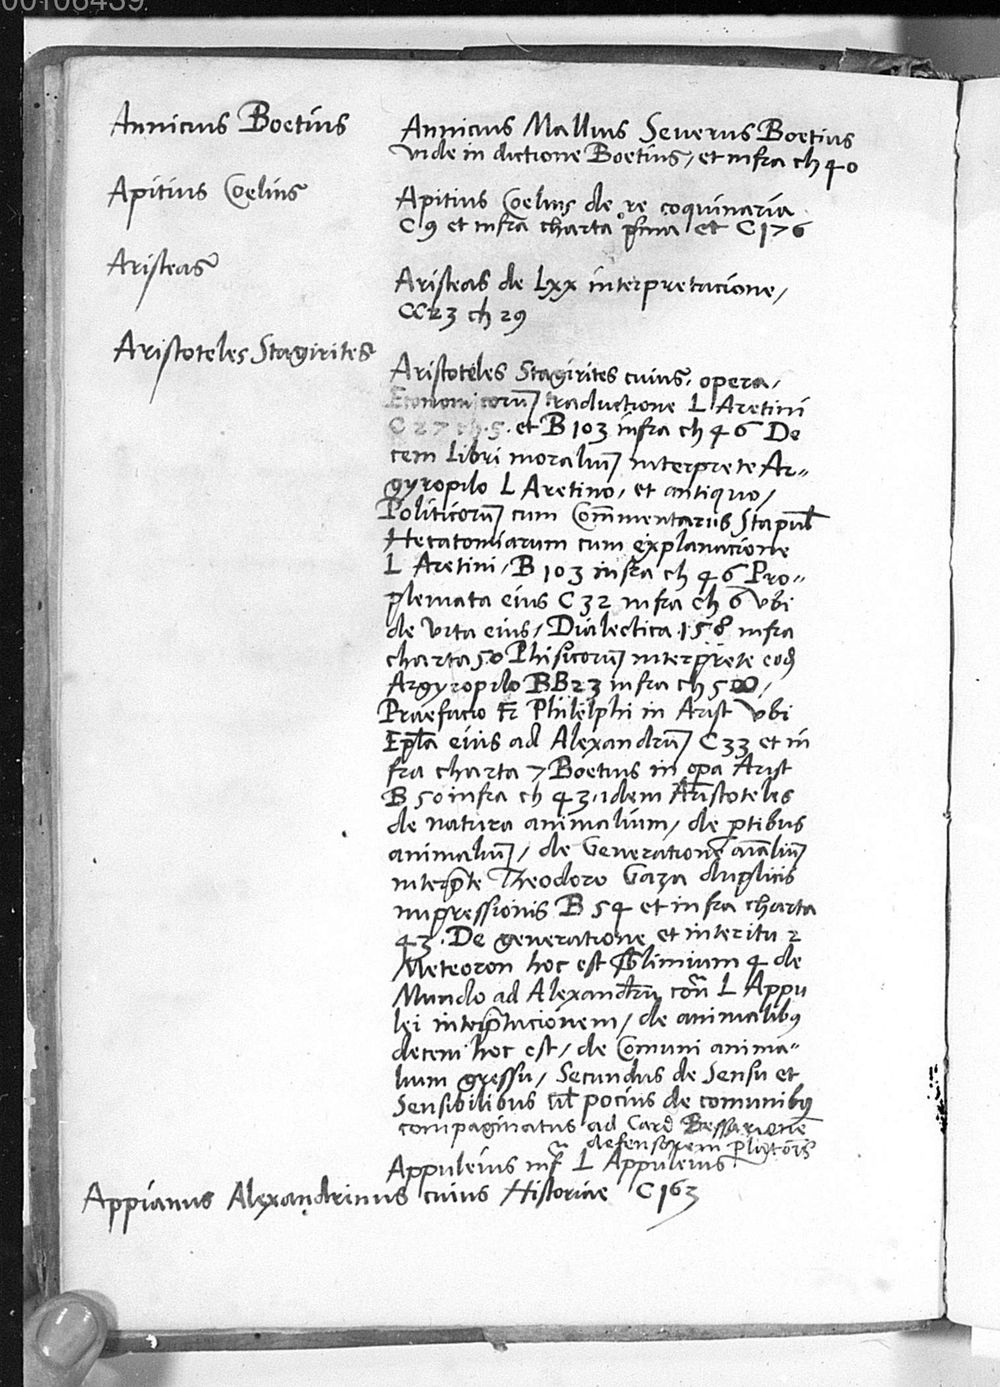 00106439
Annicius Boetius
Annicius Mallius Severus Boetius
vide in dictione Boetius, et infra ch 40
Apitius Coelius
Apitius Coelius de re coquinaria
C 9 et infra charta pͥma et C 176
Aristeas
Aristeas de Lxx interpretacione,
CC 23 ch 29
Aristoteles Stagirites
Aristoteles Stagirites cuius opera,
Economicorum traductione L Aretini
C 27 ch. 5. et B 103 infra ch 46 De
cem Libri moralium interprete Ar=
gyropilo L Aretino, et antiquo,
Politicorum cum Com̄mentariis Stapul
Hecatomiarum cum explanacione
L Aretini, B 103 infra ch 46 Pro=
plemata eius C 32 infra ch 6 vbi
de vita eius, Dialectica 158 infra
charta 50 Phisicorum interprete eod
Argyropilo BB 23 infra ch 500,
Praefacio Fr Philelphi in Arist vbi
Epl̄a eius ad Alexandrum C 33 et in
fra charta 7 Boetius in op̄a Arist
B 50 infra ch 43. idem Aristoteles
de natura animalium, de ꝑtibus
animalium, de Generatione aīalium
interp̄te Theodoro Gaza duplicis
impressionis B 54 et infra charta
43. De generatione et interitu 2
Meteoron hoc est Sblimium 4 de
Mundo ad Alexandrū L Appu
lei interp̄tacionem, de animalibꝯ
decem hoc est, de Comuni anima=
lium gressu, Secundus de Sensu et
Sensibilibus ul̄ pocius de comunibꝯ
compaginatus ad Card Bessarionē
defensorem Platonis
Appuleius infᷓ L Appuleius
Appianus Alexandrinus cuius Historiae C 163